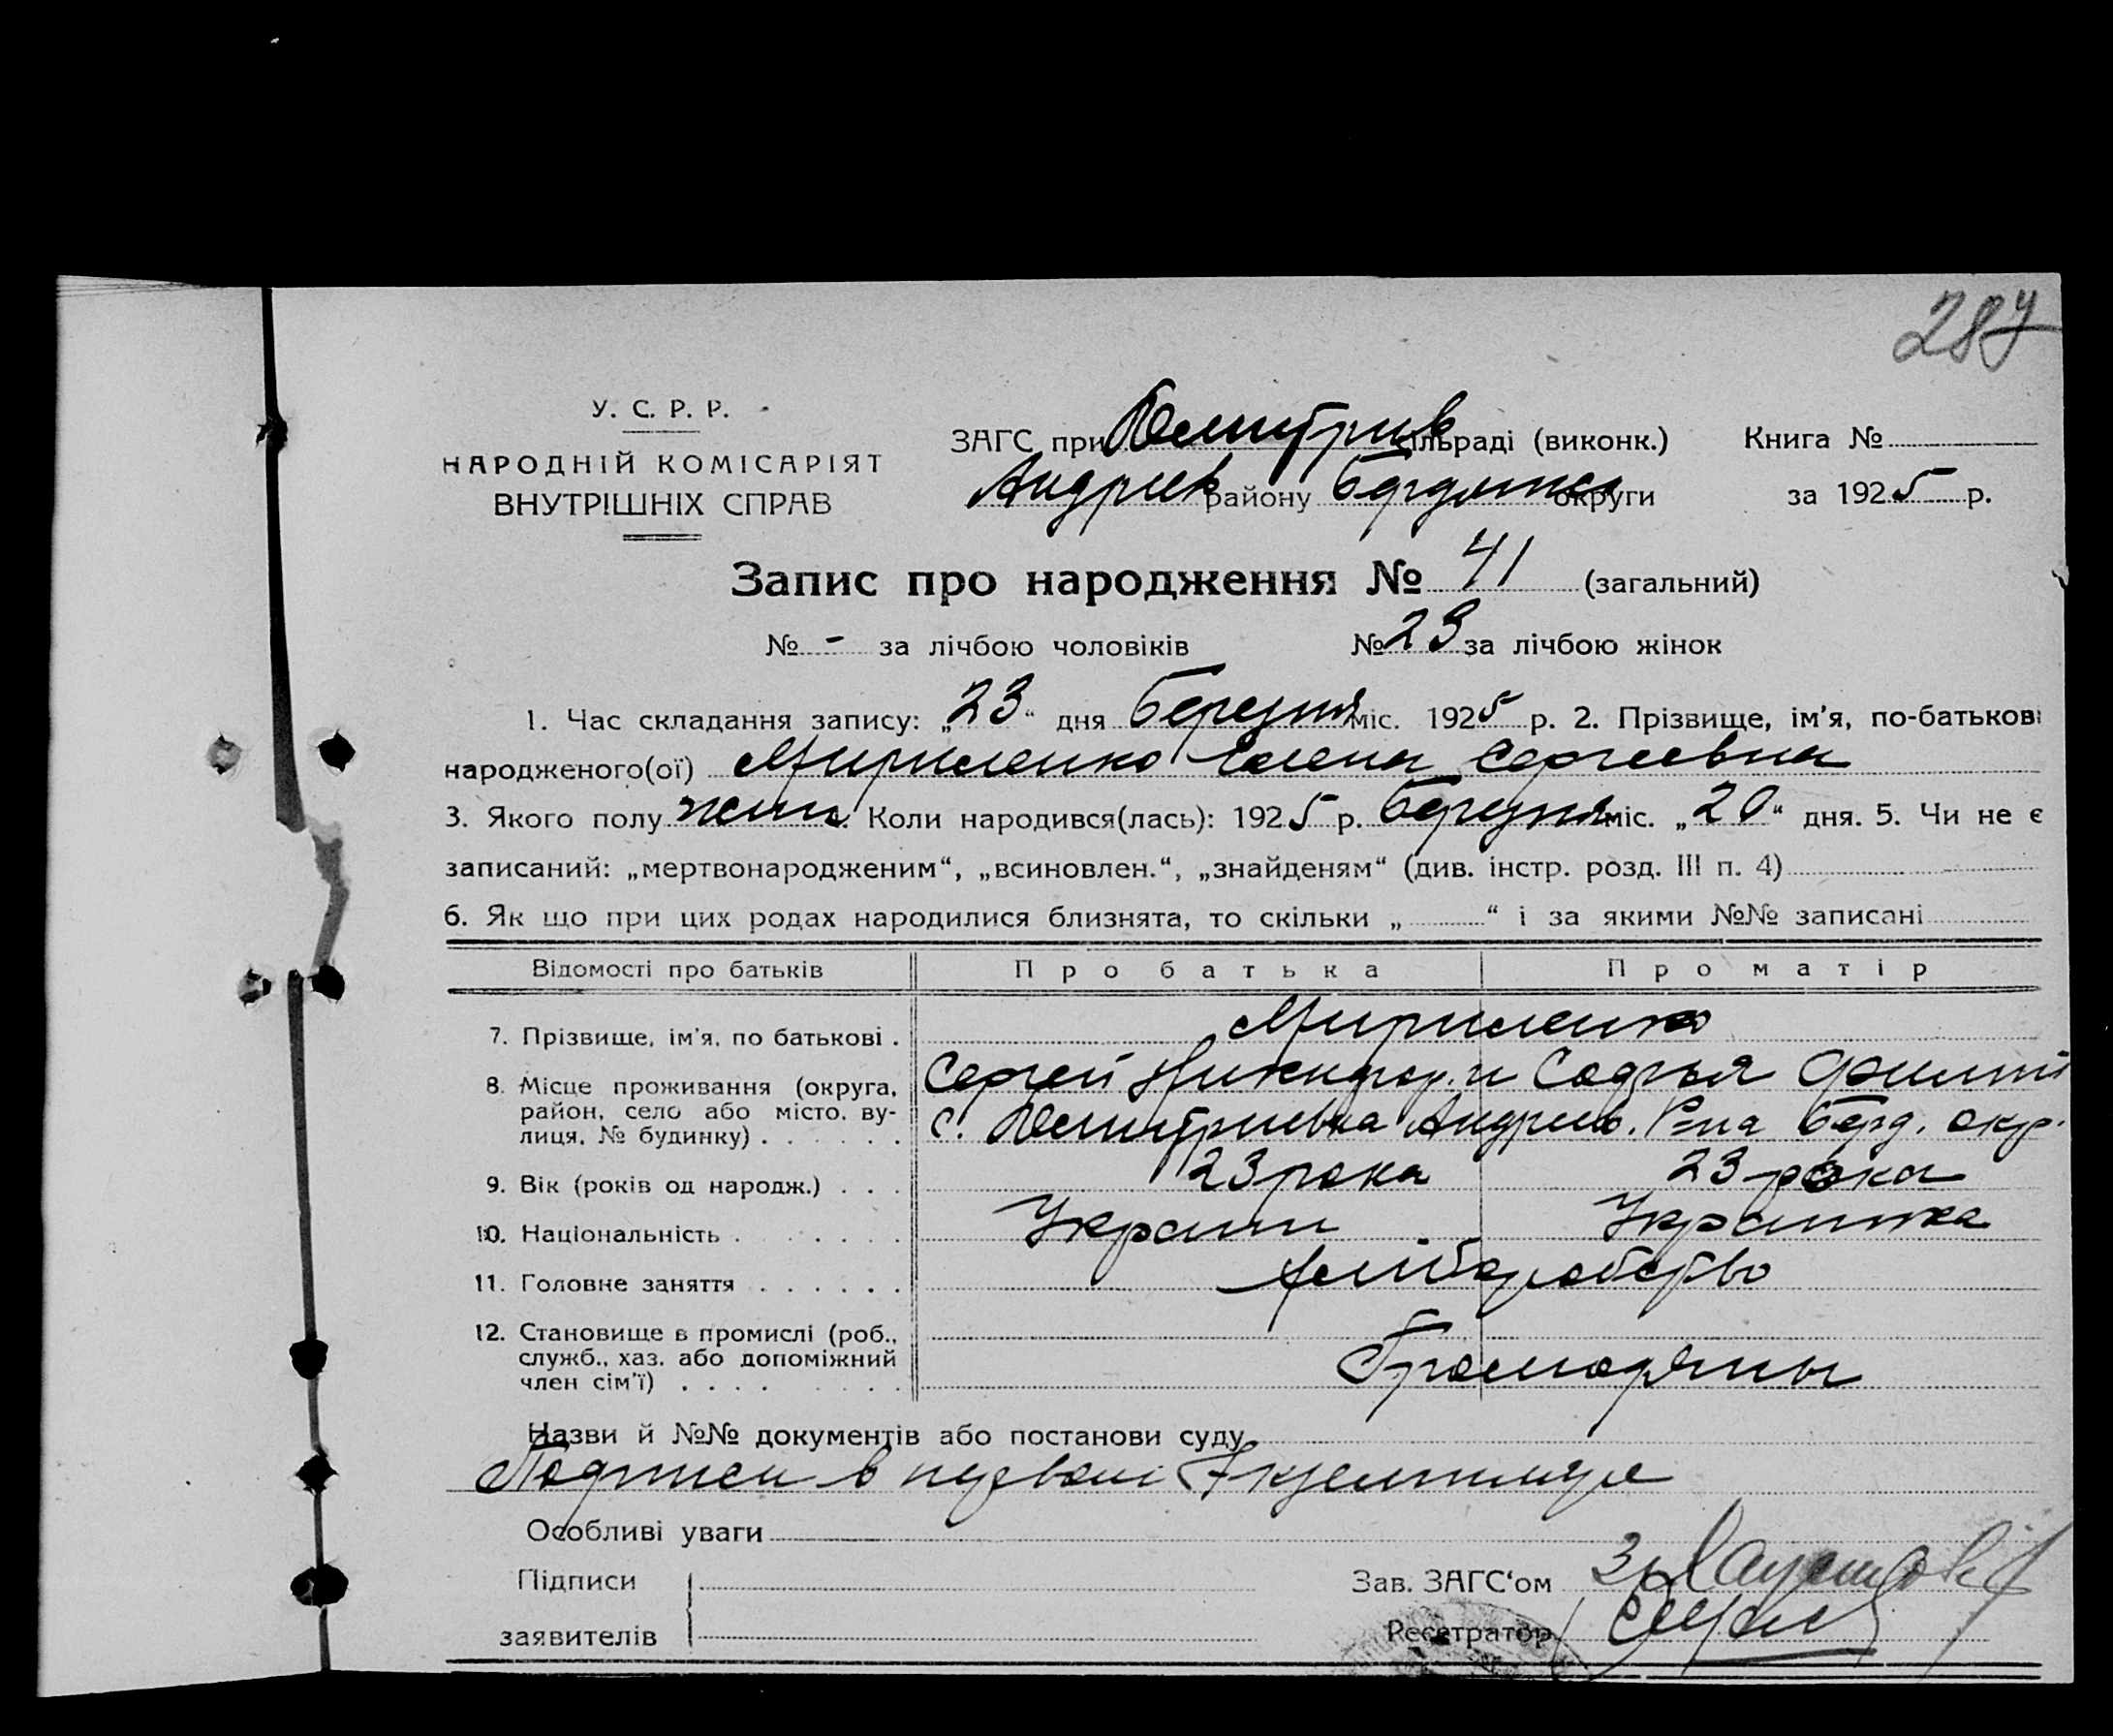 287
У. С. Р. Р.
НАРОДНІЙ КОМІСАРІЯТ
ВНУТРІШНІХ СПРАВ
ЗАГС при Дмитрив сільраді (виконк.) Книга №
Андріев району Бердянськ округи за 1925 р.
Запис про народження № 41 (загальний)
№ - за лічбою чоловіків № 23 за лічбою жінок
1. Час складання запису: „23“ дня Березня міс. 1925 р. 2. Прізвище, ім'я, по-батькові
народженого(ої) Мириленко Елена Сергеевна
3. Якого полу жин. Коли народився(лась): 1925 р. Березня міс. „20“ дня. 5. Чи не є
записаний: „мертвонародженим“, „всиновлен.“, „знайденям“ (див. інстр. розд. III п. 4)
6. Як що при цих родах народилися близнята, то скільки „ “ і за якими №№ записані
Відомості про батьків Про батька Про матір
7. Прізвище, ім'я, по батькові . Мириленко
8. Місце проживання (округа, Сергей Никифор. и Софья
район, село або місто, ву- с. Дмитриевка Андриев. Р-на Берд. окр.
лиця, № будинку) . . . . . .
9. Вік (років од народж.) . . . 23 рока 23 рока
10. Національність . . . . . . . Україн Українка
11. Головне заняття . . . . . . Хліборобство
12. Становище в промислі (роб.,
служб., хаз. або допоміжний
член сім'ї) . . . .
Назви й №№ документів або постанови суду
Подписи в первом Экземпляре
Особливі уваги
Підписи Зав. ЗАГС'ом
заявителів Реєстратор